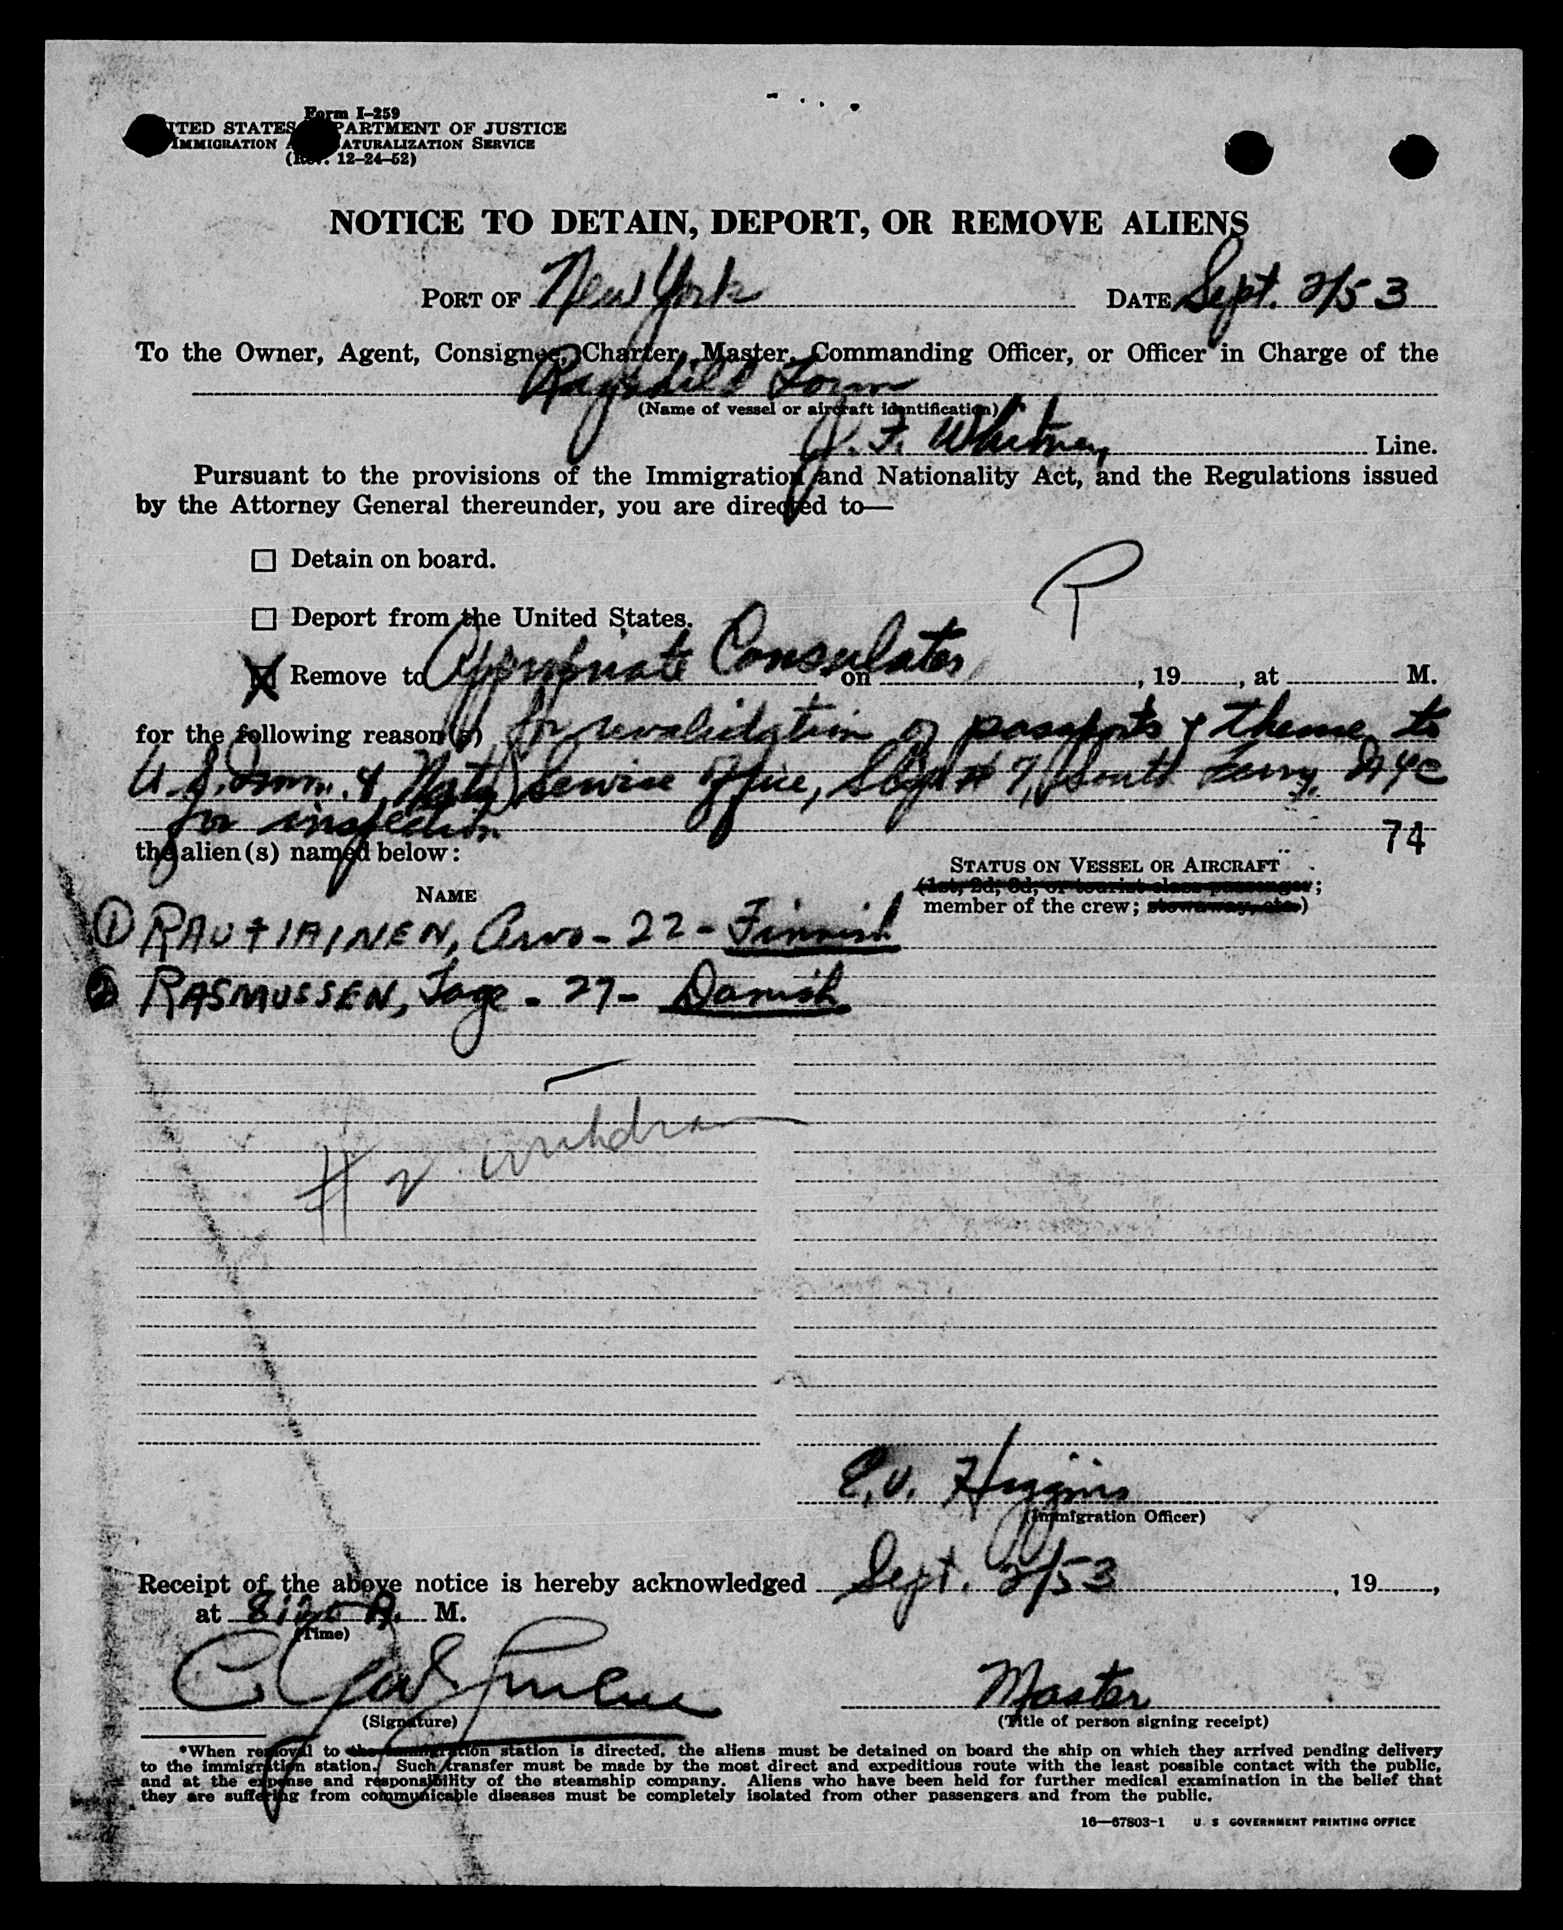 Form I-259
UNITED STATES DEPARTMENT OF JUSTICE
IMMIGRATION AND NATURALIZATION SERVICE
(Rev. 12-24-52)
NOTICE TO DETAIN, DEPORT, OR REMOVE ALIENS
PORT OF New York DATE Sept. 2/53
To the Owner, Agent, Consignee, Charter, Master, Commanding Officer, or Officer in Charge of the
Ragnhild Torm
(Name of vessel or aircraft identification)
J. F. Whitney Line.
Pursuant to the provisions of the Immigration and Nationality Act, and the Regulations issued
by the Attorney General thereunder, you are directed to—
☐ Detain on board.
R
☐ Deport from the United States.
☒ Remove to Appropriate Consulates on , 19 , at M.
for the following reason(s) for revalidation of passports & thence to
U.S. Imm. & Natz Service Office, Slip # 7, South Ferry, NYC
for inspection
74
the alien(s) named below:
STATUS ON VESSEL OR AIRCRAFT
(1st, 2d, 3d, or tourist class passenger;
NAME
member of the crew; stowaway, etc.)
① RAUTIAINEN, Arvo - 22 - Finnish
② RASMUSSEN, Tage - 27 - Danish
# 2 withdrawn
E. V. Higgins
(Immigration Officer)
Receipt of the above notice is hereby acknowledged Sept. 2/53 , 19 ,
at 8:20 A. M.
(Time)
Master
(Signature) (Title of person signing receipt)
*When removal to the immigration station is directed, the aliens must be detained on board the ship on which they arrived pending delivery
to the immigration station. Such transfer must be made by the most direct and expeditious route with the least possible contact with the public,
and at the expense and responsibility of the steamship company. Aliens who have been held for further medical examination in the belief that
they are suffering from communicable diseases must be completely isolated from other passengers and from the public.
16—67803-1 U. S GOVERNMENT PRINTING OFFICE